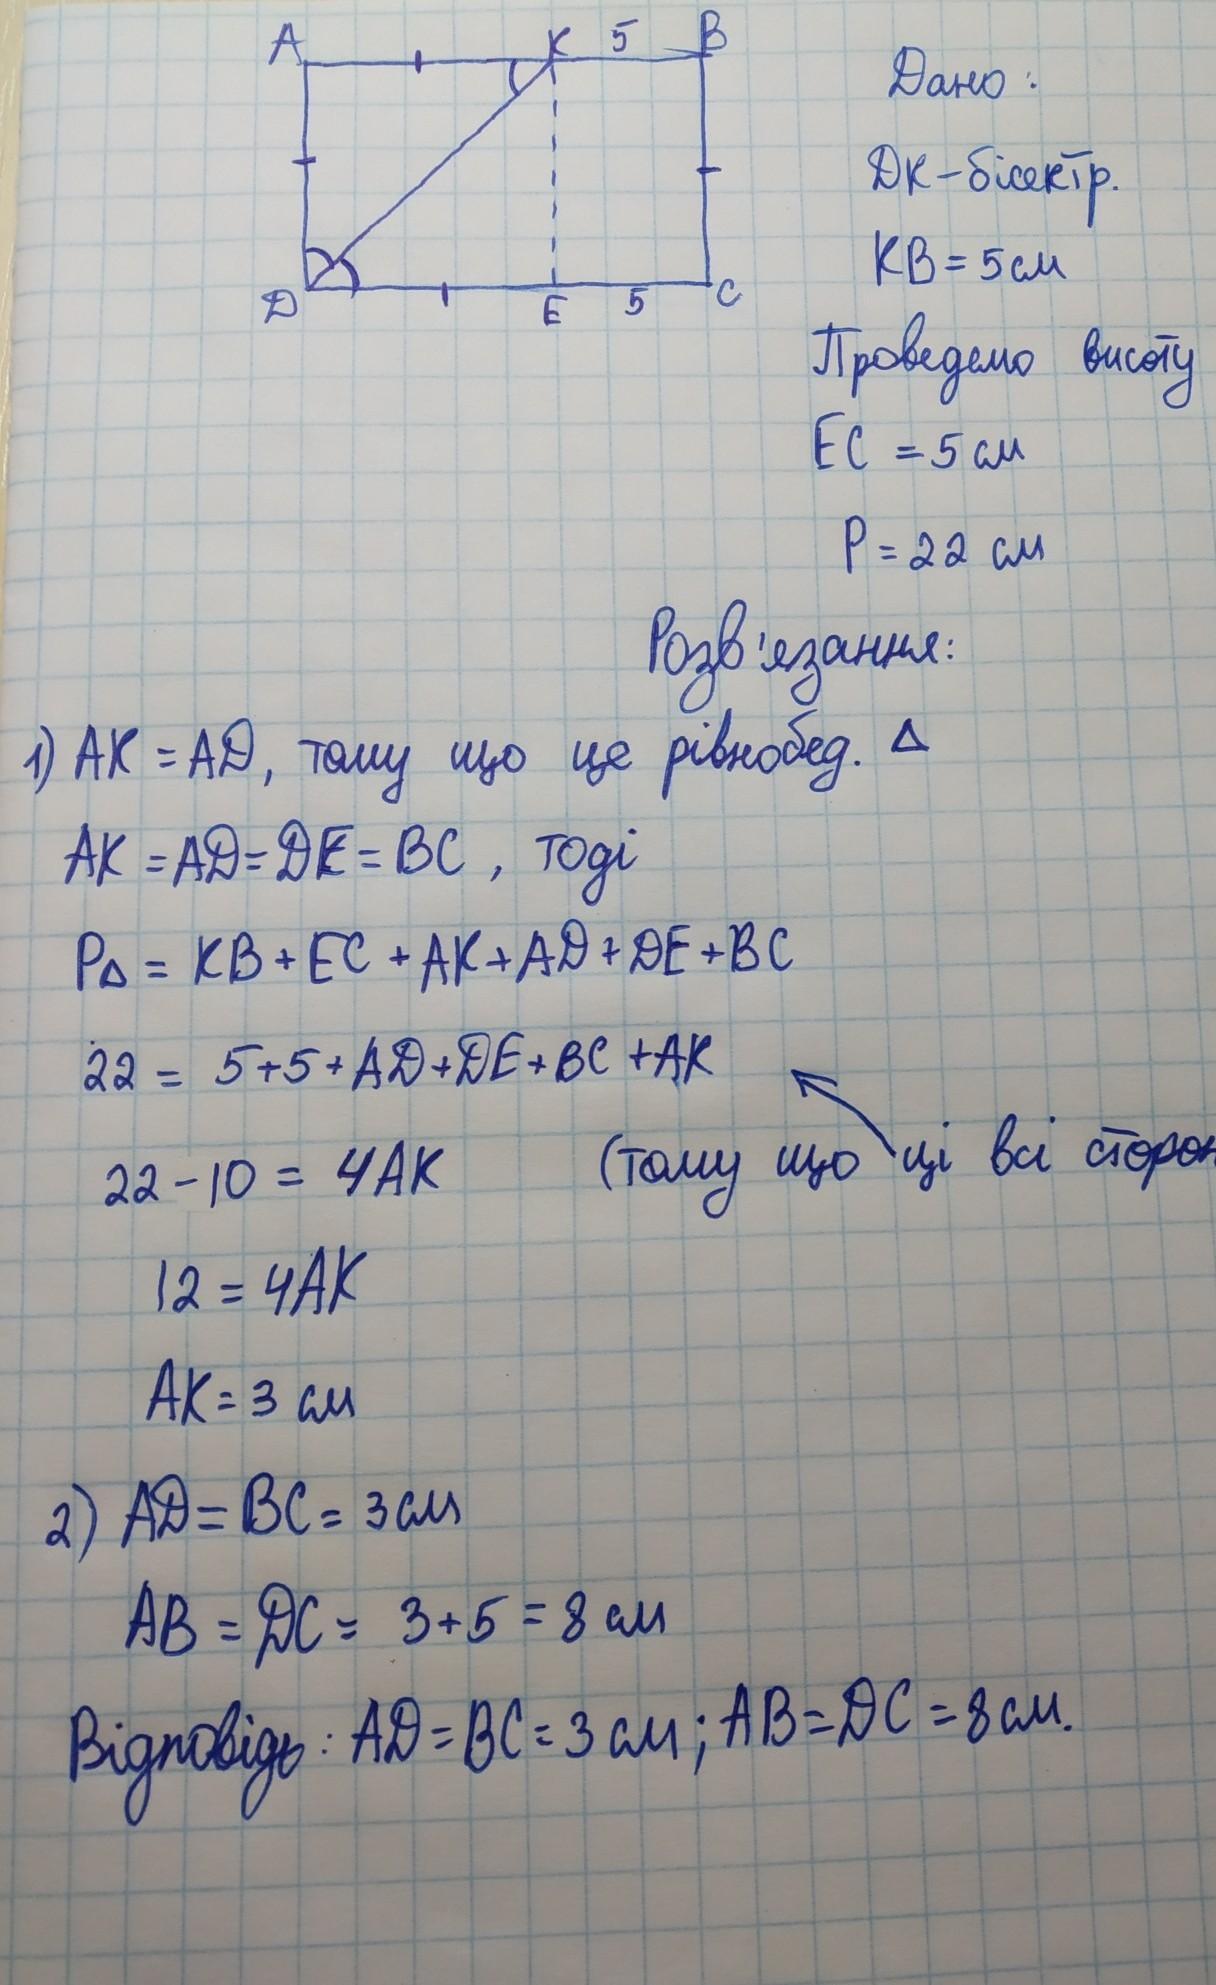 A K 5 B
D E 5 C
Дано:
DK - бісектр.
KB = 5 см
Проведемо висоту
EC = 5 см
P = 22 см
Розв'язання:
1) AK = AD, тому що це рівнобед. Δ
AK = AD = DE = BC, тоді
PΔ = KB + EC + AK + AD + DE + BC
22 = 5+5+AD+DE+BC+AK
22 - 10 = 4AK (тому що ці всі сторон
12 = 4AK
AK = 3 см
2) AD = BC = 3 см
AB = DC = 3+5 = 8 см
Відповідь: AD = BC = 3 см; AB = DC = 8 см.